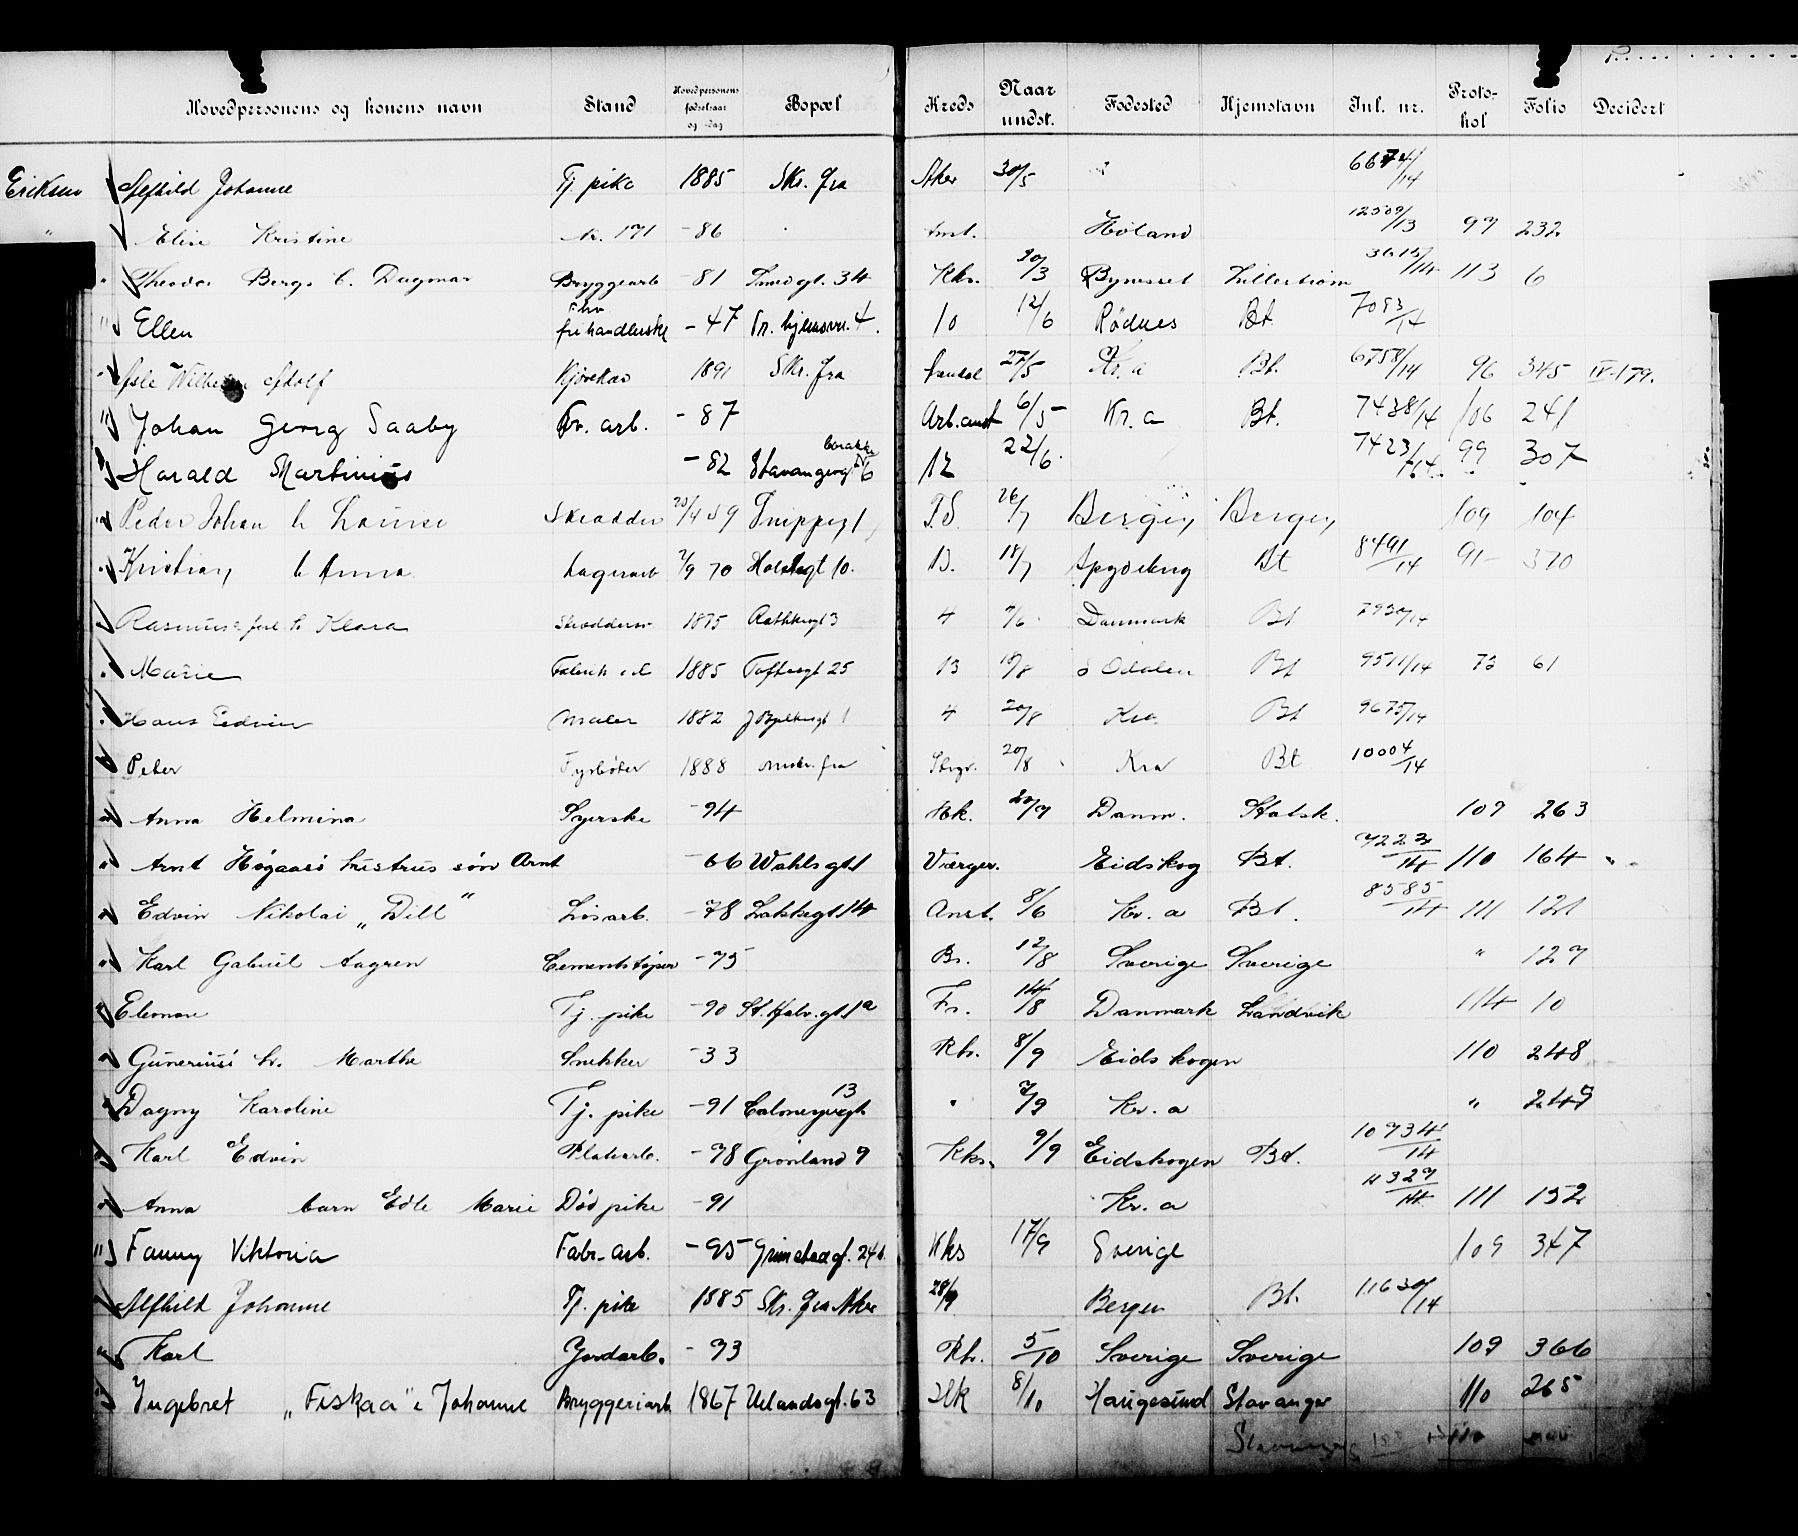 Hovedpersonens og konens navn Stand Hovedpersonens fødselsaar og -dag Bopæl Kreds Naar undst. Fødested Hjemstavn Inl. nr. Protokol Folio Decidert
Eriksen Alfhild Johanne Tj. pike 1885 Skr. fra Aker 30/5 6674/14
" Elise Kristine N. 171 -86 Høland 12509/13 97 232
" Theodor Berge h. Dagmar Bryggearb -81 Smedgt. 34 Kks. 30/3 Bynesset Lillestrøm 113 6
" Ellen Fhv frihandlerske -47 10 12/6 Rødnes Bt. 7093/14
" Wilhelm Adolf 1891 Skr. fra 27/5 Kr. a Bt. 6758/14 96 345 IV-179.
" Johan Georg Saaby Fv. arb. -87 Arb. anst 6/5 Kr. a Bt. 7438/14 106 241
" Harald Martinius -82 Stavangergt barakke IV 6 12 22/6 7423/14 99 307
" Peder Johan h Louise Skrædder 20/4 59 26/7 Bergen Bergen 109 104
" Kristian h Anna Lagerarb 7/9 70 Holstsgt 10. 13. 18/7 Spydeberg Bt 8491/14 91 370
Rasmus h Klara 1875 Rathkesgt 3 4 Danmark Bt 7930/14
" Marie 1885 Toftesgt 25 13 S Odalen Bt 9511/14 73 61
" Hans Edvin Maler 1882 4 20/8 Kra. Bt 9675/14
" Peter Fyrbøter 1888 20/8 Kra Bt 10004/14
" Anna Helmina Syerske -94 Hk. 20/7 Danm. Statsk. 109 263
" Arnt Høgaas søn Arnt -66 Wahlsgt 1 Værger. Eidskog Bt. 7223/14 110 164
" Edvin Nikolai „Dill" Løsarb. -78 Lakkegt 14 Anst. 8/6 Kr. a Bt. 8585/14 111 121
" Karl Gabriel Aagren Cementstøper -75 Br. 12/8 Sverige Sverige " 127
" Elenore Tj. pike -90 St. Halv. gt. 1a Fr. 14/8 Danmark Landvik 114 10
" Gunerius h. Marthe Snekker -33 Rh. 8/9 Eidskogen 110 248
" Dagny Karoline Tj. pike -91 Calmeyergt 13 " 7/9 Kr. a " 249
" Karl Edvin Platearb. -78 Grønland 9 Kks. 9/9 Eidskogen Bt. 10734/14
" Anna barn Edle Marie Død pike -91 Kr. a 11327/14 111 152
" Fanny Viktoria Fabr. arb. -95 Grimstadgt. 24 Kks 17/9 Sverige 109 347
" Alfhild Johanne Tj. pike 1885 Skr. fra Aker 28/9 Bergen Bt. 11630/14
" Karl Jordarb. -93 Rh. 5/10 Sverige Sverige 109 366
" Ingebret „Fiskaa" Johanne Bryggeriarb. 1867 Uelandsgt. 63 Hk 8/10 Haugesund Stavanger 110 265
Stavanger